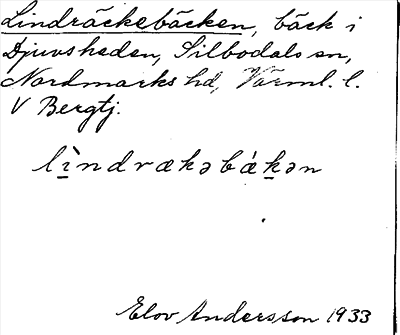 Lindräckebäcken, bäck i
Djuvsheden, Silbodals sn,
Nordmarks hd, Värml. l.
V Bergtj.
lìndrækəbǽkən
Elov Andersson 1933